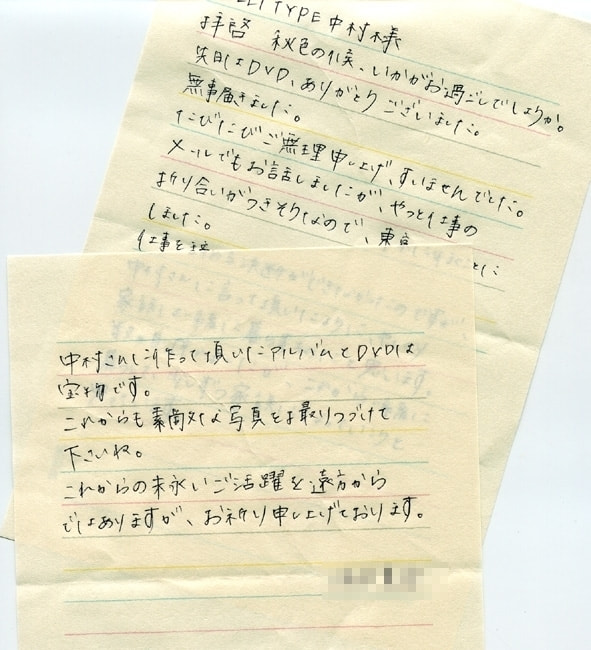 TYPE 中村様
拝啓 秋色の候、いかがお過ごしでしょうか。
先日はDVD、ありがとうございました。
無事届きました。
たびたびご無理申し上げ、すいませんでした。
メールでもお話しましたが、やっと仕事の
折り合いがつきそうなので、東京
しました。
仕事を
中村さんに作って頂いたアルバムとDVDは
宝物です。
これからも素敵な写真をお撮りつづけて
下さいね。
これからの末永いご活躍を遠方から
ではありますが、お祈り申し上げております。